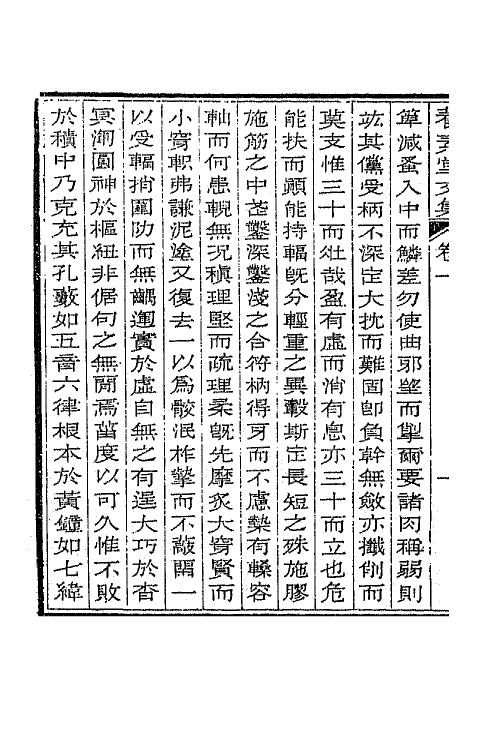 卷一
一
箄減蚤入中而鱗差勿使曲邪望而掣爾要諸肉稱弱則
竑其儻受柄不深定大扤而難固卽負幹無斂亦攕削而
莫支惟三十而壯哉盈有虛而消有息亦三十而立也危
能扶而顚能持輻旣分輕重之異轂斯定長短之殊施膠
施筋之中菑鑿深鑿淺之合符柄得牙而不慮槷有轑容
軸而何患輗無况稹理堅而疏理柔旣先摩炙大穿賢而
小穿軹弗謙泥塗又復去一以爲骹泯柞摯而不敲閷一
以受輻捎圍阞而無齲運實於虛自無之有逞大巧於杳
冥溯圓神於樞紐非倨句之無閒焉菑度以可久惟不敗
於積中乃克充其孔藪如五音六律根本於黃鐘如七緯